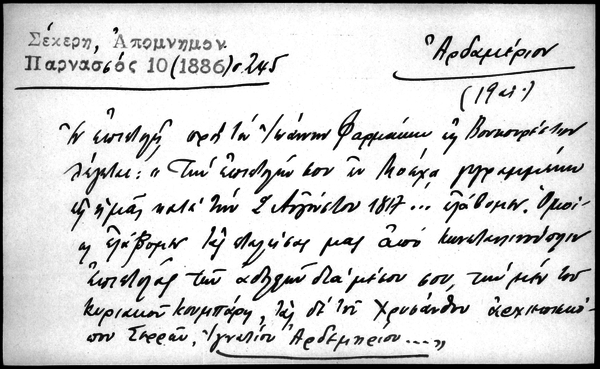 Σέκερη, Ἀπομνημον.
Παρνασσός 10 (1886) σ. 245
Ἀρδαμέριον
(19 αἰ.)
Ἐν ἐπιστολῇ πρὸς τὸν Ἰωάννην Φαρμάκην εἰς Βουκουρέστιον
λέγεται: « Τὴν ἐπιστολήν σου ἐκ Μόσχα γεγραμμένην
εἰς ἡμᾶς κατὰ τὴν 2 Αὐγούστου 1817 ... ἐλάβομεν. Ὁμοί-
ως ἐλάβομεν τὰς σταλείσας μας ἀπὸ Κωνσταντινούπολιν
ἐπιστολὰς τῶν ἀδελφῶν διὰ μέσου σου, τὴν μὲν τοῦ
Κυριακοῦ Κουμπάρη, τὰς δὲ τοῦ Χρυσάνθου ἀρχιεπισκό-
που Σερρῶν, Ἰγνατίου Ἀρδαμηρίου .... »